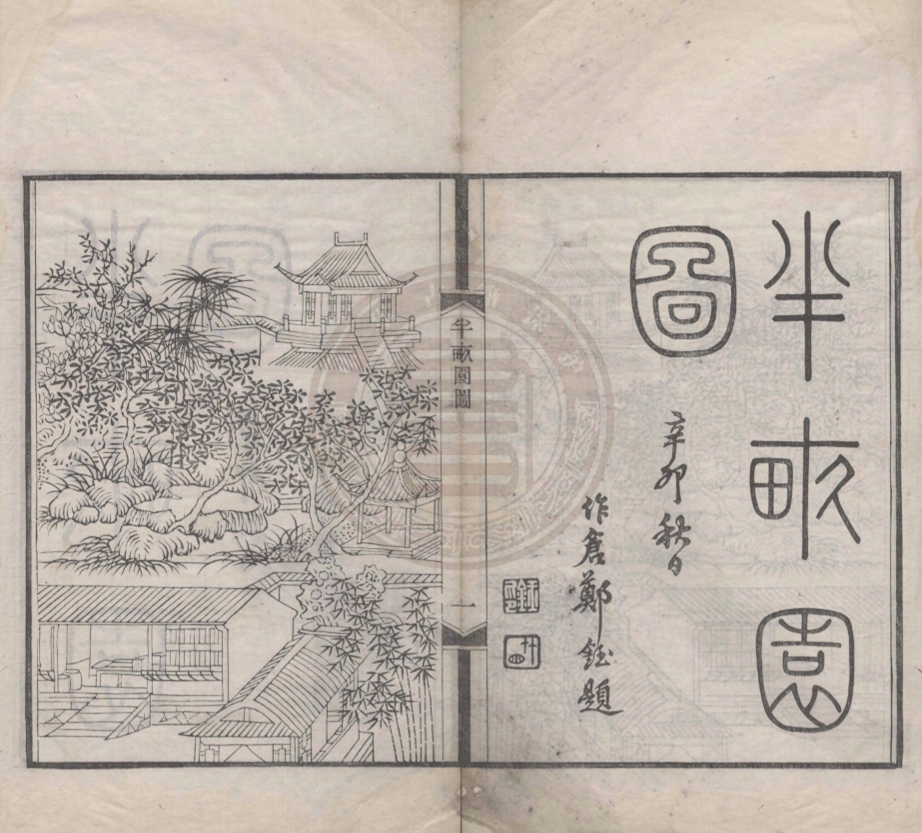 半畝園
圖
辛卯秋日
作倉鄭鈺題
半畝園圖
一